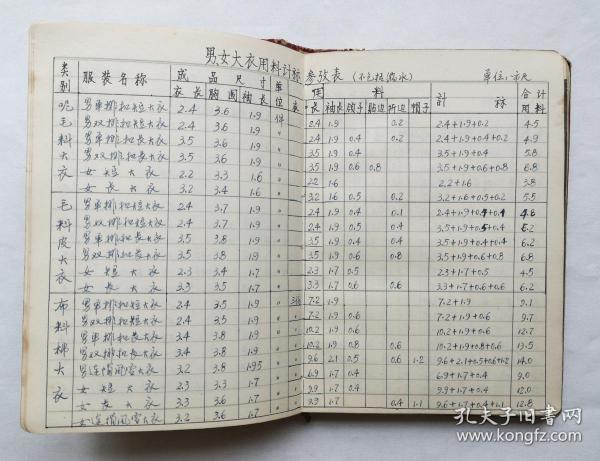 男女大衣用料计称参考表 (不包括缩水) 单位:市尺
类别 服装名称 成品尺寸 单位 用料 计称 合计用料
衣长 胸围 袖长 衣长 袖长 领子 贴边 折边 帽子
呢毛料大衣
男单排扣短大衣 2.4 3.6 1.9 件 2.4 1.9 0.2 2.4+1.9+0.2 4.5
男双排扣短大衣 2.4 3.6 1.9 〃 2.4 1.9 0.4 0.2 2.4+1.9+0.4+0.2 4.9
男单排扣长大衣 3.5 3.6 1.9 〃 3.5 1.9 0.4 3.5+1.9+0.4 5.8
男双排扣长大衣 3.5 3.6 1.9 〃 3.5 1.9 0.6 0.8 3.5+1.9+0.6+0.8 6.8
女短大衣 2.2 3.3 1.6 〃 2.2 1.6 2.2+1.6 3.8
女长大衣 3.2 3.4 1.6 〃 3.2 1.6 0.5 0.2 3.2+1.6+0.5+0.2 5.5
毛料皮大衣
男单排扣短大衣 2.4 3.7 1.9 〃 2.4 1.9 0.4 0.1 4.8
男双排扣短大衣 2.4 3.7 1.9 〃 2.4 1.9 0.5 0.4
男单排扣长大衣 3.5 3.8 1.9 〃 3.5 1.9 0.4 0.4 3.5+1.9+0.4+0.4 6.2
男双排扣长大衣 3.5 3.8 〃 3.5 1.9 0.6 0.8 3.5+1.9+0.6+0.8 6.8
女短大衣 2.3 3.4 1.7 〃 2.3 1.7 0.5 2.3+1.7+0.5 4.5
女长大衣 3.3 3.5 1.7 〃 3.3 1.7 0.6 0.6 3.3+1.7+0.6+0.6 6.2
布料棉大衣
男单排扣短大衣 2.4 3.5 1.9 7.2 1.9 7.2+1.9 9.1
男双排扣短大衣 2.4 3.5 1.9 〃 7.2 1.9 0.6 7.2+1.9+0.6 9.7
男单排扣长大衣 3.4 3.8 1.9 〃 10.2 1.9 0.6 10.2+1.9+0.6 12.7
男双排扣长大衣 3.4 3.8 1.9 〃 10.2 1.9 0.8 0.6 10.2+1.9+0.8+0.6 13.5
男连帽风雪大衣 3.2 3.8 1.95 〃 9.6 2.1 0.5 0.6 1.2 9.6+2.1+0.5+0.6+1.2 14.0
女短大衣 2.3 3.3 1.7 〃 6.9 1.7 0.4 6.9+1.7+0.4 9.0
女长大衣 3.3 3.6 1.7 〃 9.9 1.7 0.4 9.9+1.7+0.4 12.0
女连帽风雪大衣 3.2 3.6 1.7 〃 1.7 0.4 1.1 9.6+1.7+0.4+1.1 12.8
孔夫子旧书网
www.kongfz.com